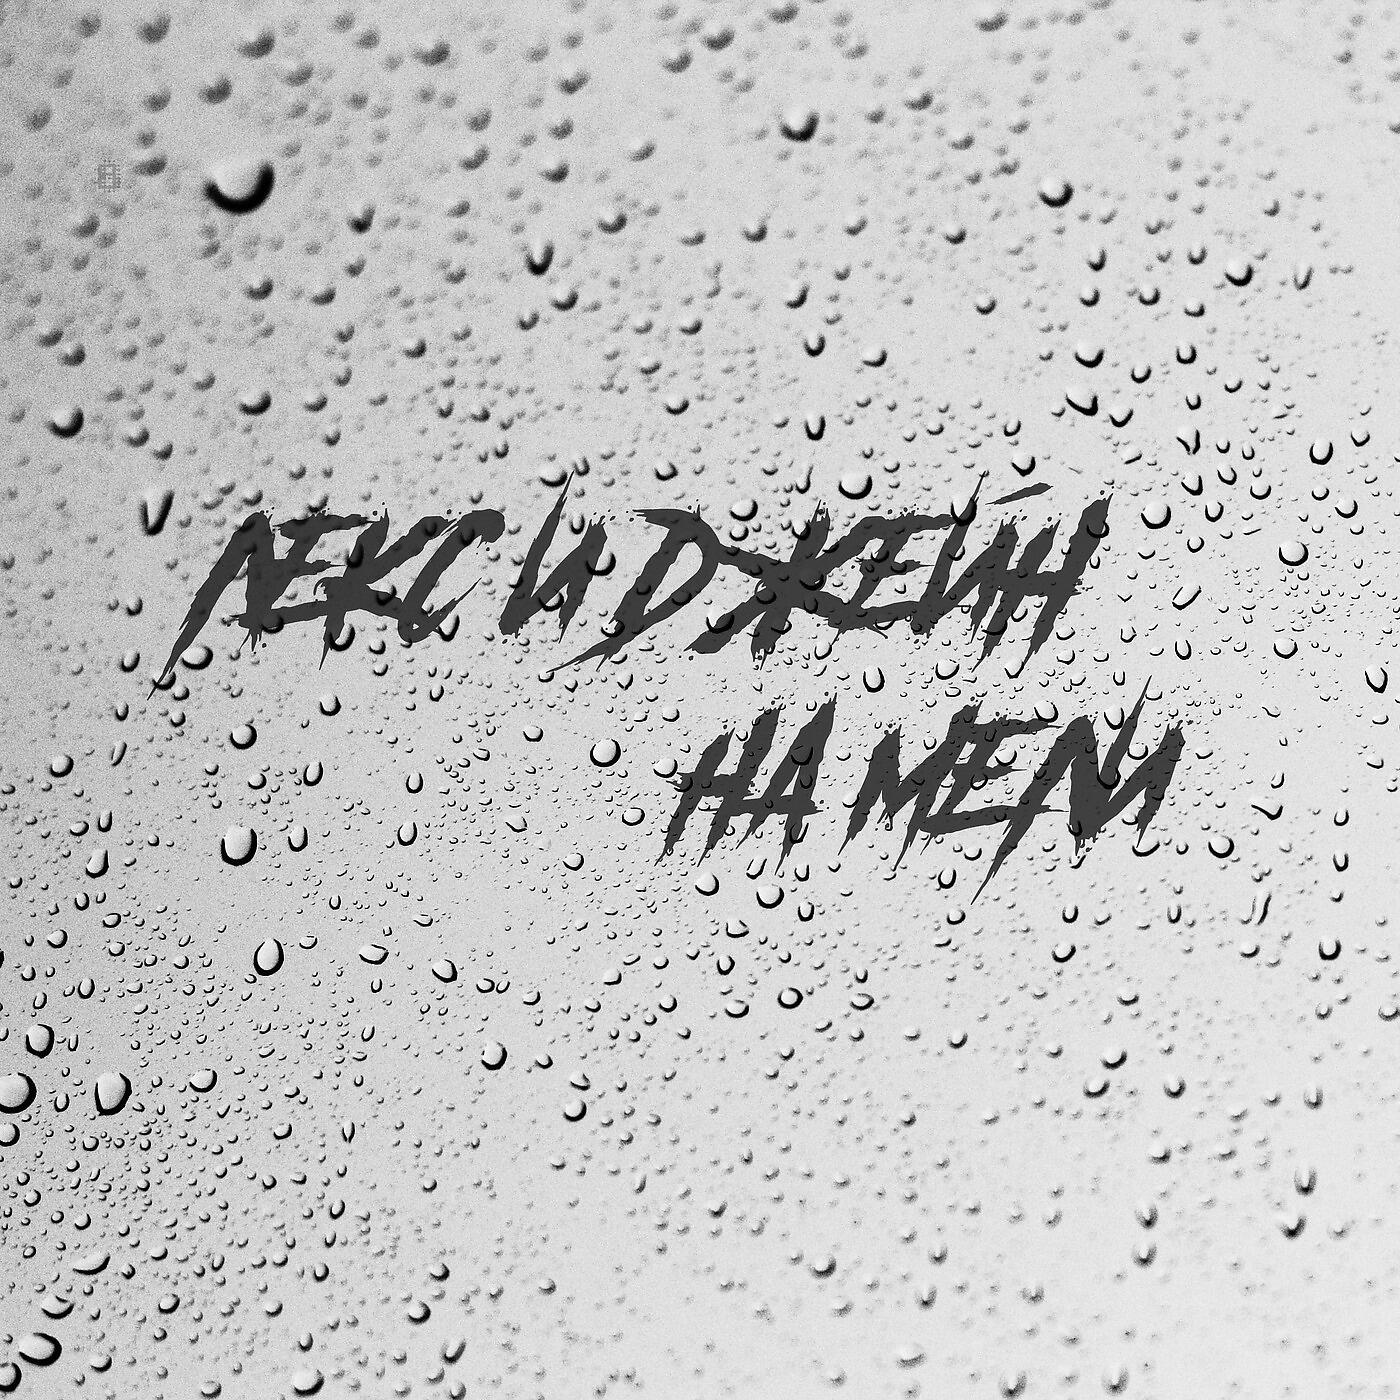 ЛЕКС И ДЖЕЙН
НА МЕЛИ